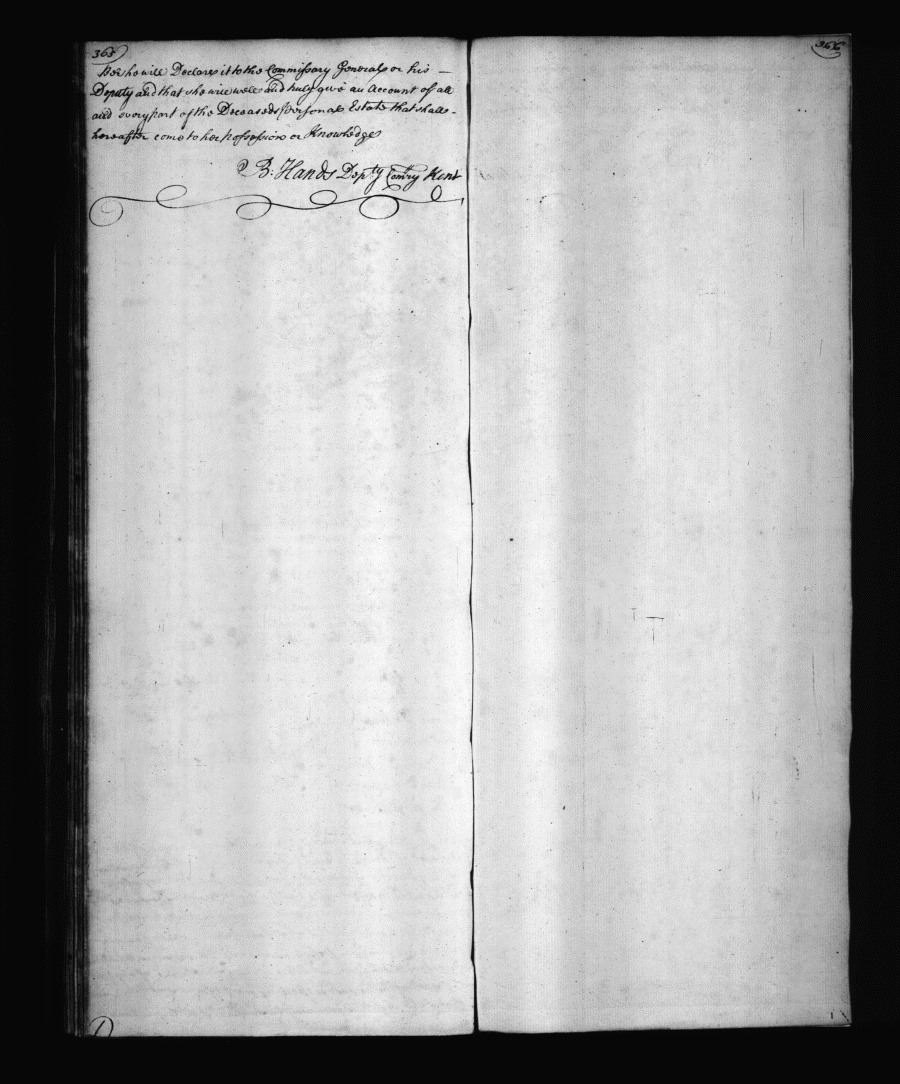 365
her she will Declare it to the Commissary General or his —
Deputy and that she will well and truly give an Account of all
and every part of the Deceaseds Personal Estate that shall -
hereafter come to her possession or Knowledge
B: Hands Depty Comry Kent
366